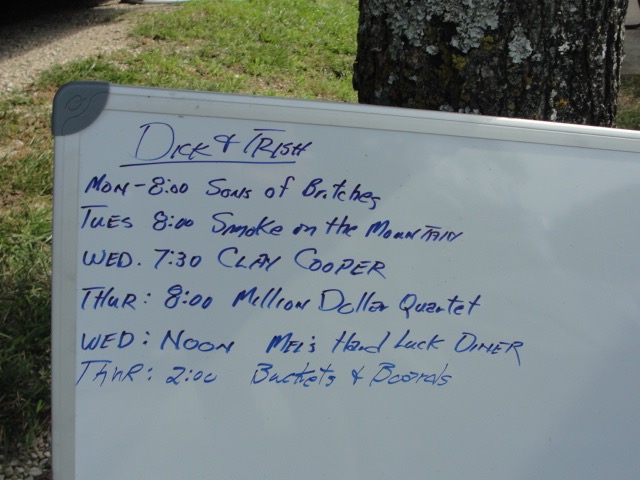 Dick & Trish
Mon - 8:00 Sons of Britches
Tues 8:00 Smoke on the Mountain
Wed. 7:30 Clay Cooper
Thur: 8:00 Million Dollar Quartet
Wed: Noon Mel's Hard Luck Diner
Thur: 2:00 Buckets & Boards